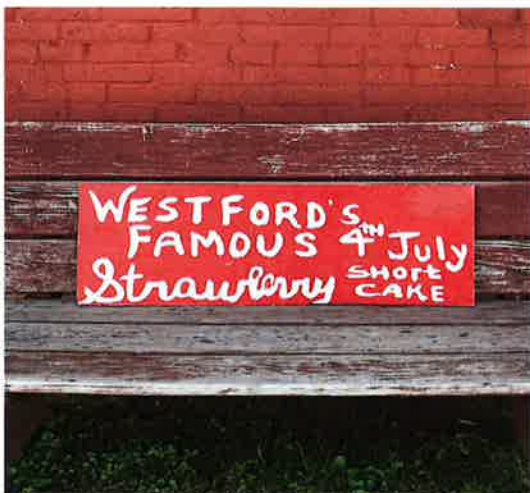 WESTFORD'S
FAMOUS 4TH July
Strawberry SHORT
CAKE